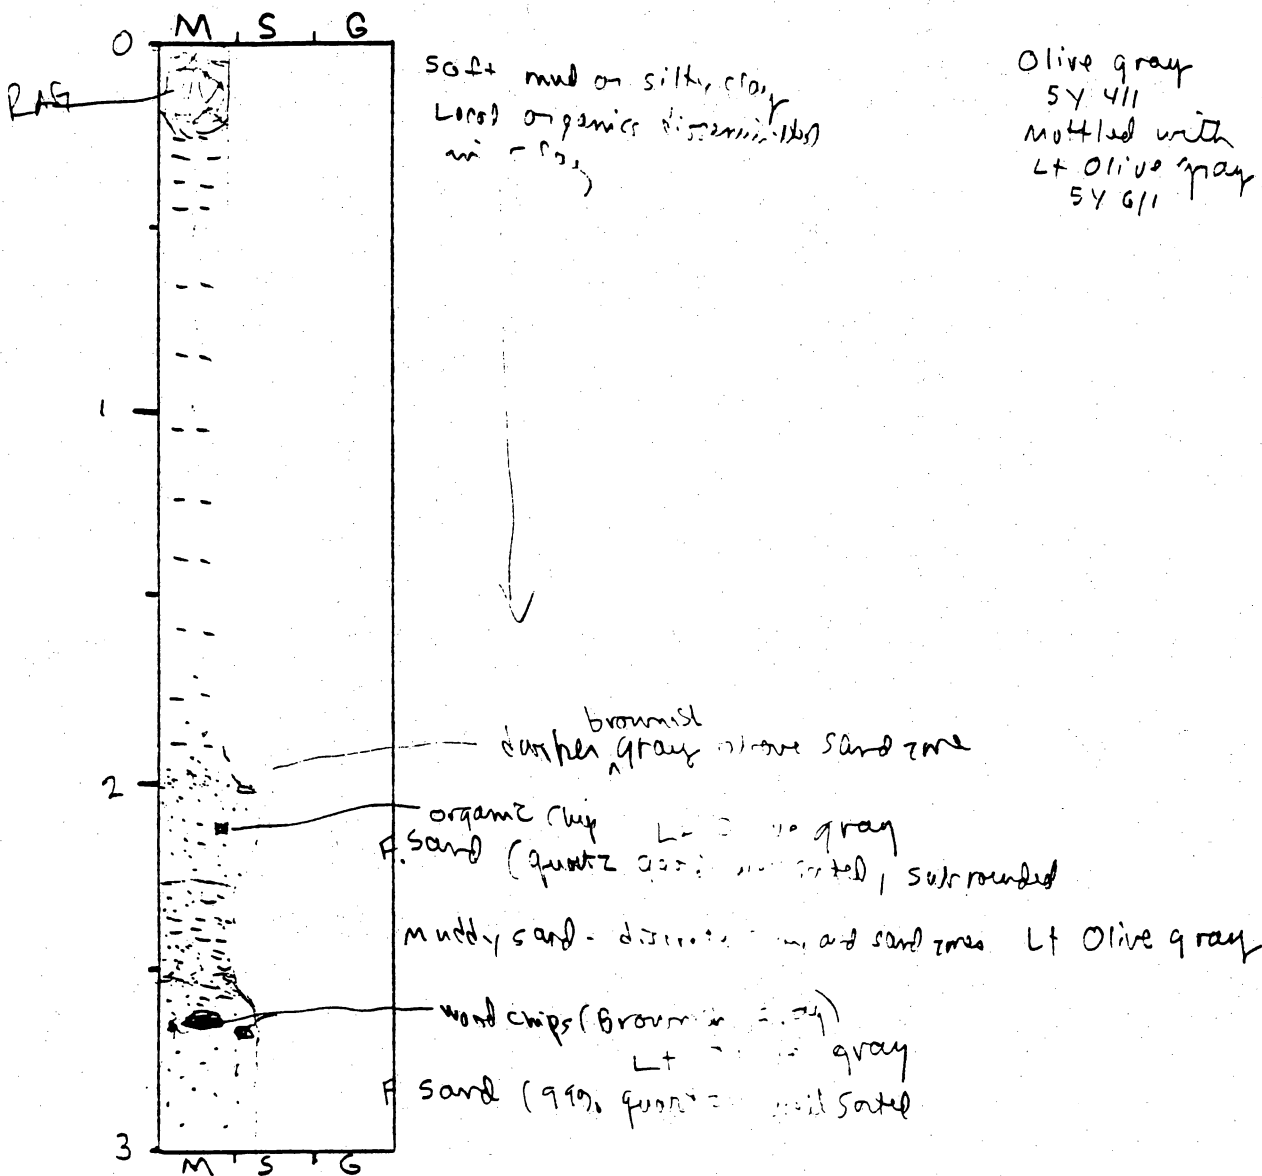 M S G
0
RAG
soft mud or silty clay
Local organics disseminated
in clay
Olive gray
5Y 4/1
Mottled with
Lt Olive gray
5Y 6/1
1
brownish
darker gray above sand zone
2
organic chip
Lt Olive gray
F. Sand (quartz sorted, subrounded
Muddy sand - discrete and sand zones Lt Olive gray
wood chips (Brownish
Lt gray
F sand (99% quartz well sorted
3
M S G